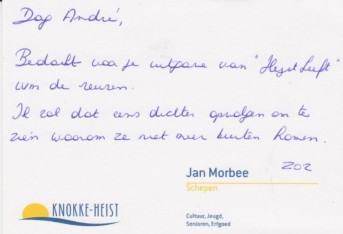 Dag André,
Bedankt voor je uitgave van "Heyst Leeft"
de reuzen.
Ik zal dat eens dichter opvolgen om te
zien waarom ze niet meer buiten komen.
Jan Morbee
Schepen
KNOKKE-HEIST
Cultuur, Jeugd,
Senioren, Erfgoed